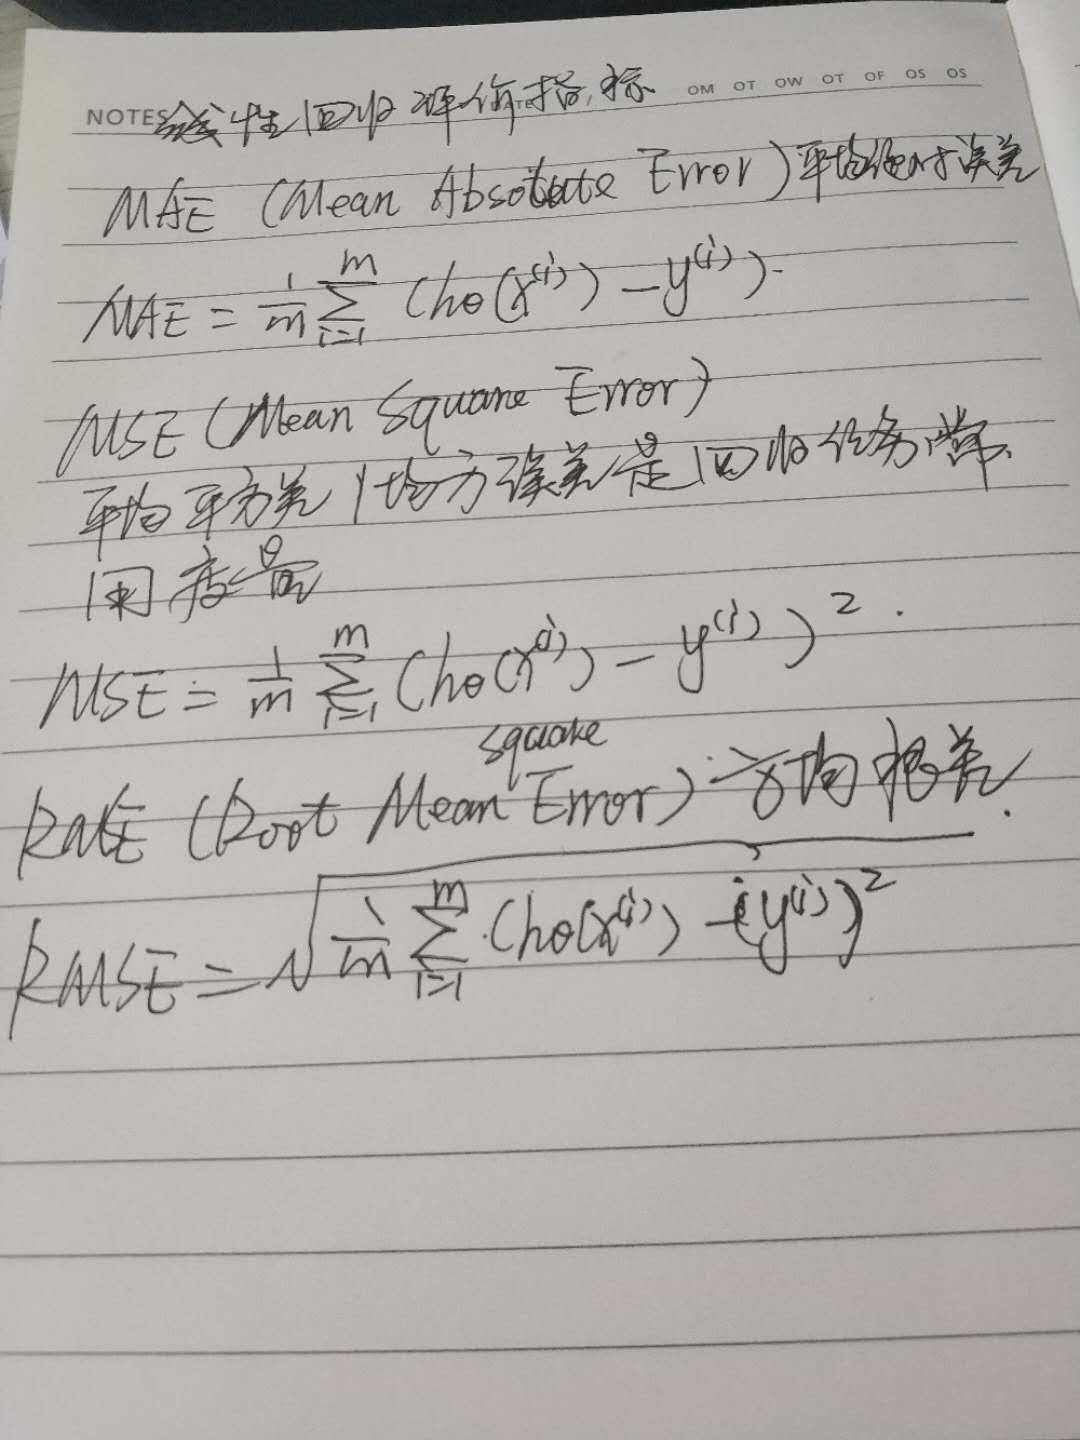 NOTES 线性回归评价指标 DATE OM OT OW OT OF OS OS
MAE (Mean Absolute Error) 平均绝对误差
MAE = 1/m ∑_{i=1}^{m} (hθ(x^{(i)}) - y^{(i)}).
MSE (Mean Square Error)
平均平方差/均方误差是回归任务常
用度量
MSE = 1/m ∑_{i=1}^{m} (hθ(x^{(i)}) - y^{(i)})².
square
(Root Mean Error) 方均根差.
RMSE = √(1/m ∑_{i=1}^{m} (hθ(x^{(i)}) - (y^{(i)})²